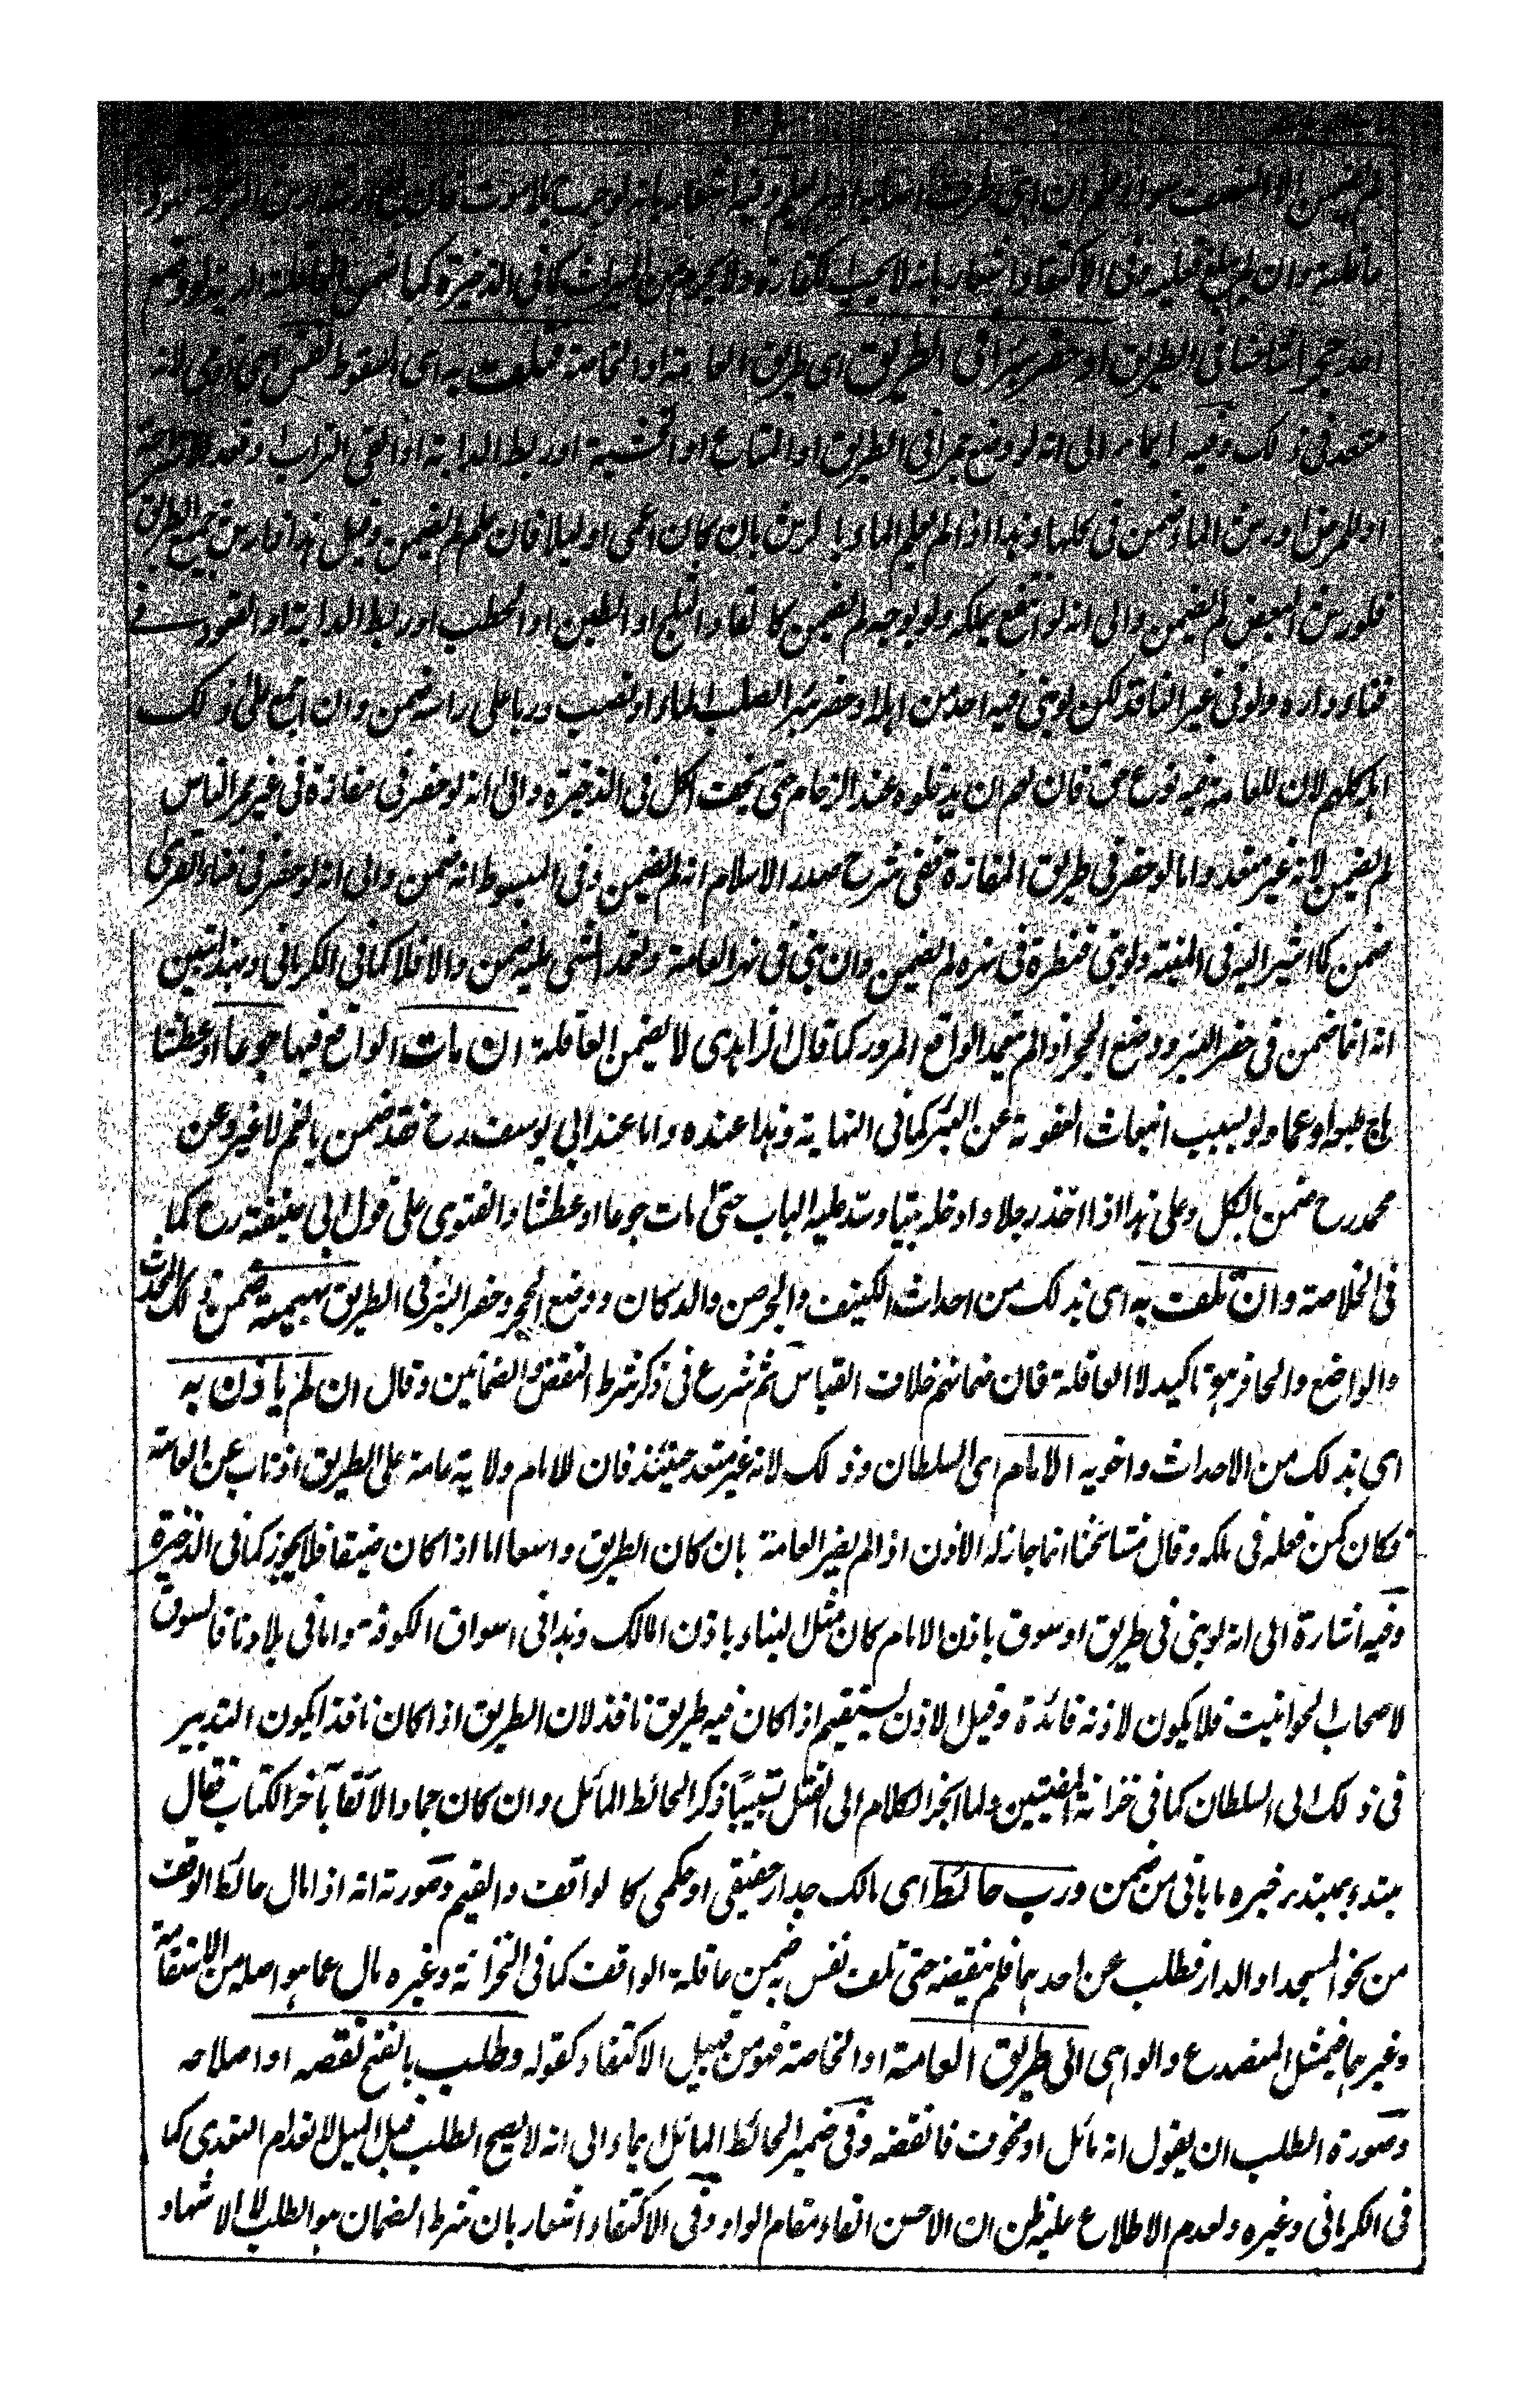 لم يضمن الا النصف سواء علم ان اى طرف اصابه او لم يعلم وفيه اشعار بانه لو جرح بلا موت فان بلغ ارشه ارش الموضحة فهو
عاقلته وان لم يبلغ فعليه وفى الاكتفاء اشعار بانه لا يجب الكفارة ولا يحرم عن الميراث كما فى الذخيرة كما ضمن العاقلة الدية لو وضع
احد حجرا شاخصا فى الطريق او حفر بئرا فى الطريق اى طريق العامة او الخاصة فتلف به اى السقوط نفس اى آدمى لانه
متعد فى ذلك وفيه ايماء الى انه لو وضع جمرا فى الطريق او المتاع او الخشبة او ربط الدابة او القى التراب او قعد للاستراحة
او للمرض او رش الماء ضمن فى كلها وهذا اذا لم يعلم المار بالرش بان كان اعمى او ليلا فان علم لم يضمن وقيل هذا اذا رش جميع الطريق
فلو رش البعض لم يضمن والى انه لو انتفع بملكه ولو بوجه لم يضمن كالقاء الثلج او الطين او الحطب او ربط الدابة او القعود فى
فناء داره ولو فى غير النافذ لكن لو بنى فيه احد من اهله او حفر بئرا لصب الماء او نصب دربا على راسه ضمن وان اجمع على ذلك
اهله كلهم لان للعامة فيه نوع حق فان لهم ان يدخلوه عند الزحام حتى يخف الكل فى الذخيرة والى انه لو حفر فى مفازة فى غير ممر الناس
لم يضمن لانه غير متعد واما لو حفر فى طريق المفازة ففى شرح صدر الاسلام انه لم يضمن وفى المبسوط انه ضمن والى انه لو حفر فى فناء القرى
ضمن كما اشير اليه فى المنية ولو بنى قنطرة فى نهره لم يضمن وان بنى فى نهر العامة وتعمد المشى عليه ضمن والا فلا كما فى الكرمانى وبهذا تبين
انه انما ضمن فى حفر البئر ووضع الحجر اذا لم يتعمد الواقع المرور كما قال الزاهدى لا يضمن العاقلة ان مات الواقع فيها جوعا او عطشا
اى طبعا او غما ولو بسبب انبعاث العفونة عن البئر كما فى النهاية وهذا عنده واما عند ابى يوسف رح فقد ضمن بالغم لا غير وعن
محمد رح ضمن بالكل وعلى هذا اذا اخذ رجلا وادخله بيتا وسد عليه الباب حتى مات جوعا او عطشا والفتوى على قول ابى حنيفة رح كما
فى الخلاصة وان تلفت به اى بذلك من احداث الكنيف والجرصن والدكان ووضع الحجر وحفر البئر فى الطريق بهيمة ضمن ذلك المحدث
والواضع والحافر هو تاكيد لا العاقلة فان ضمانهم خلاف القياس ثم شرع فى ذكر شرط النقض والضمانين وقال ان لم ياذن به
اى بذلك من الاحداث واخويه الامام اى السلطان وذلك لانه غير متعد حينئذ فان للامام ولاية عامة على الطريق اذ ناب عن العامة
فكان كمن فعله فى ملكه وقال مشائخنا انما جاز له الاذن اذا لم يضر العامة بان كان الطريق واسعا اما اذا كان ضيقا فلا يجوز كما فى الذخيرة
وفيه اشارة الى انه لو بنى فى طريق او سوق باذن الامام كان مثل البناء باذن المالك وهذا فى اسواق الكوفة واما فى بلادنا فالسوق
لاصحاب الحوانيت فلا يكون لاذنه فائدة وقيل الاذن يستقيم اذا كان فيه طريق نافذ لان الطريق اذا كان نافذا يكون التدبير
فى ذلك الى السلطان كما فى خزانة المفتيين ولما انجر الكلام الى القتل تسبيبا ذكر الحائط المائل وان كان جمادا لائقا بآخر الكتاب فقال
مبتدء بمبتدء خبره ما ياتى من ضمن ورب حائط اى مالك جدار حقيقى او حكمى كالواقف والقيم وصورته انه اذا مال حائط الوقف
من نحو المسجد او الدار فطلب عن احدهما فلم ينقضه حتى تلف نفس به ضمن عاقلة الواقف كما فى الخزانة وغيره مال عما هو اصله من الاستقامة
وغيرها فيشمل المنصدع والواهى الى طريق العامة او الخاصة فهو من قبيل الاكتفاء كقوله وطلب بالفتح نقضه او اصلاحه
وصورة الطلب ان يقول انه مائل او مخوف فانقضه وفى ضمير الحائط المائل ايماء الى انه لا يصح الطلب قبل الميل لانعدام التعدى كما
فى الكرمانى وغيره ولعدم الاطلاع عليه ظن ان الاحسن الفاء مقام الواو وفى الاكتفاء اشعار بان شرط الضمان هو الطلب لا الاشهاد